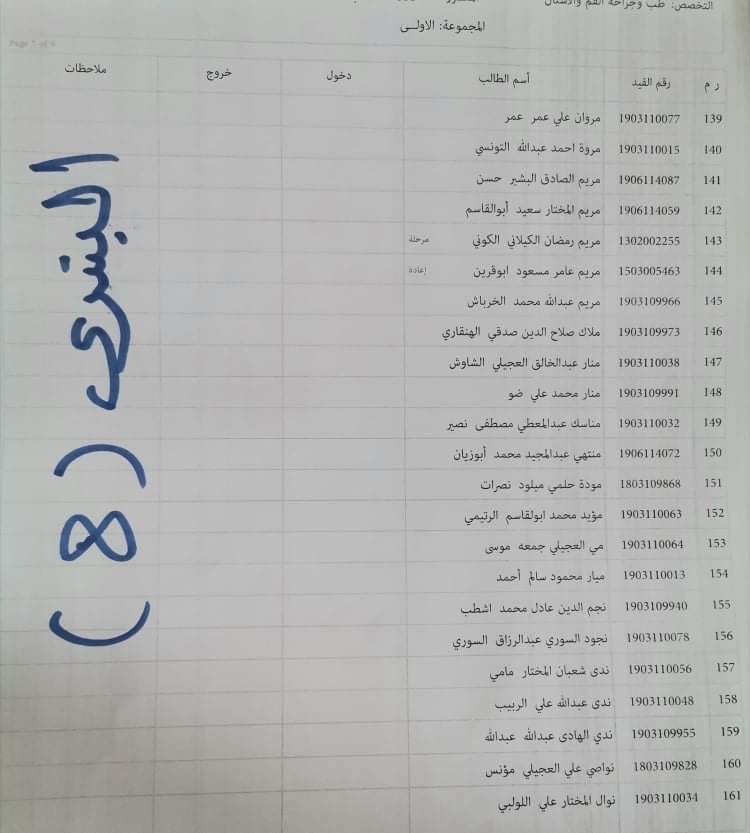 التخصص: طب وجراحة الفم والأسنان
المجموعة: الاولى
Page 7 of 9
ر م رقم القيد أسم الطالب دخول خروج ملاحظات
139 1903110077 مروان علي عمر عمر
140 1903110015 مروة احمد عبدالله التونسي
141 1906114087 مريم الصادق البشير حسن
142 1906114059 مريم المختار سعيد أبوالقاسم
143 1302002255 مريم رمضان الكيلاني الكوني مرحلة
144 1503005463 مريم عامر مسعود ابوقرين إعادة
145 1903109966 مريم عبدالله محمد الخرباش
146 1903109973 ملاك صلاح الدين صدقي الهنقاري
147 1903110038 منار عبدالخالق العجيلي الشاوش
148 1903109991 منار محمد علي ضو
149 1903110032 مناسك عبدالمعطي مصطفى نصير
150 1906114072 منتهي عبدالمجيد محمد أبوزيان
151 1803109868 مودة حلمي ميلود نصرات
152 1903110063 مؤيد محمد ابولقاسم الرتيمي
153 1903110064 مي العجيلي جمعه موسى
154 1903110013 ميار محمود سالم أحمد
155 1903109940 نجم الدين عادل محمد اشطب
156 1903110078 نجود السوري عبدالرزاق السوري
157 1903110056 ندى شعبان المختار مامي
158 1903110048 ندى عبدالله علي الربيب
159 1903109955 ندي الهادى عبدالله عبدالله
160 1803109828 نواصي علي العجيلي مؤنس
161 1903110034 نوال المختار علي اللولبي
البشرى (8)